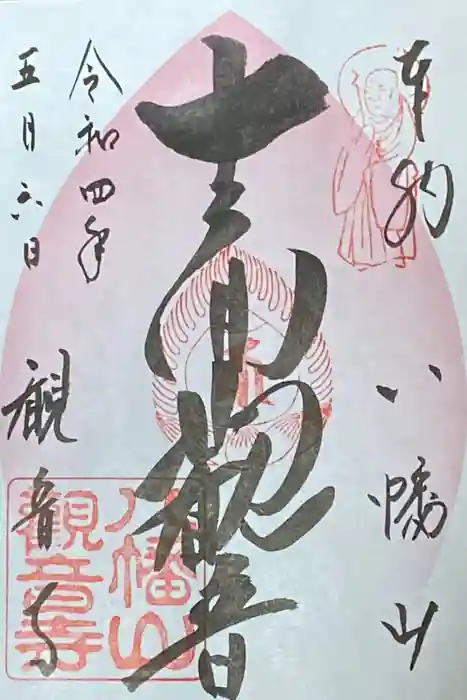 奉
八幡山
十一面観音
令和四年
五月六日
観音寺
八幡山
觀音寺